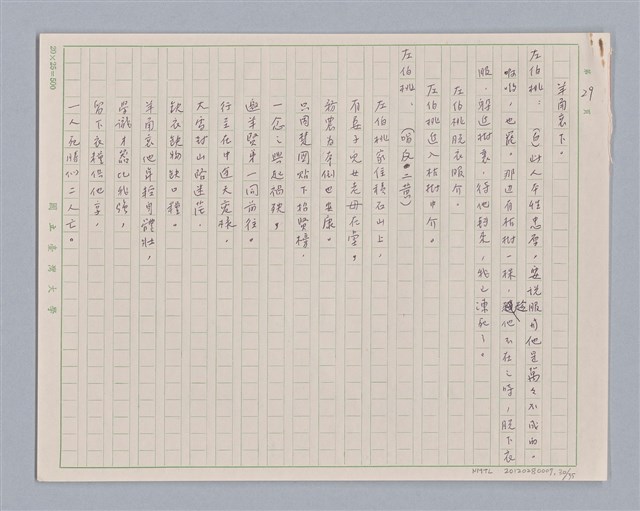 第 29 頁
羊角哀下。
左伯桃：（白）此人本性忠厚，要說服自他是萬々不成的。
啊哟，也罷。那邊有枯樹一株，趁他不在之時，脫下衣
服，躲進樹裏，待他到來，我已凍死了。
左伯桃脫衣服介。
左伯桃進入枯樹中介。
左伯桃：（唱反二黃）
左伯桃家住積石山上，
有妻子兒女老母在堂，
務農為本倒也安康。
只因楚國貼下招賢榜，
一念之興起禍殃，
邀羊賢弟一同前往。
行至在中途天寒様，
大雪封山路迷茫。
缺衣缺物缺口糧。
羊角哀他年輕身體壯，
學識才高比我強，
留下衣糧供他享，
一人死勝似二人亡。
20×25=500
國立臺灣大學
NMTL 20120280009. 30/35